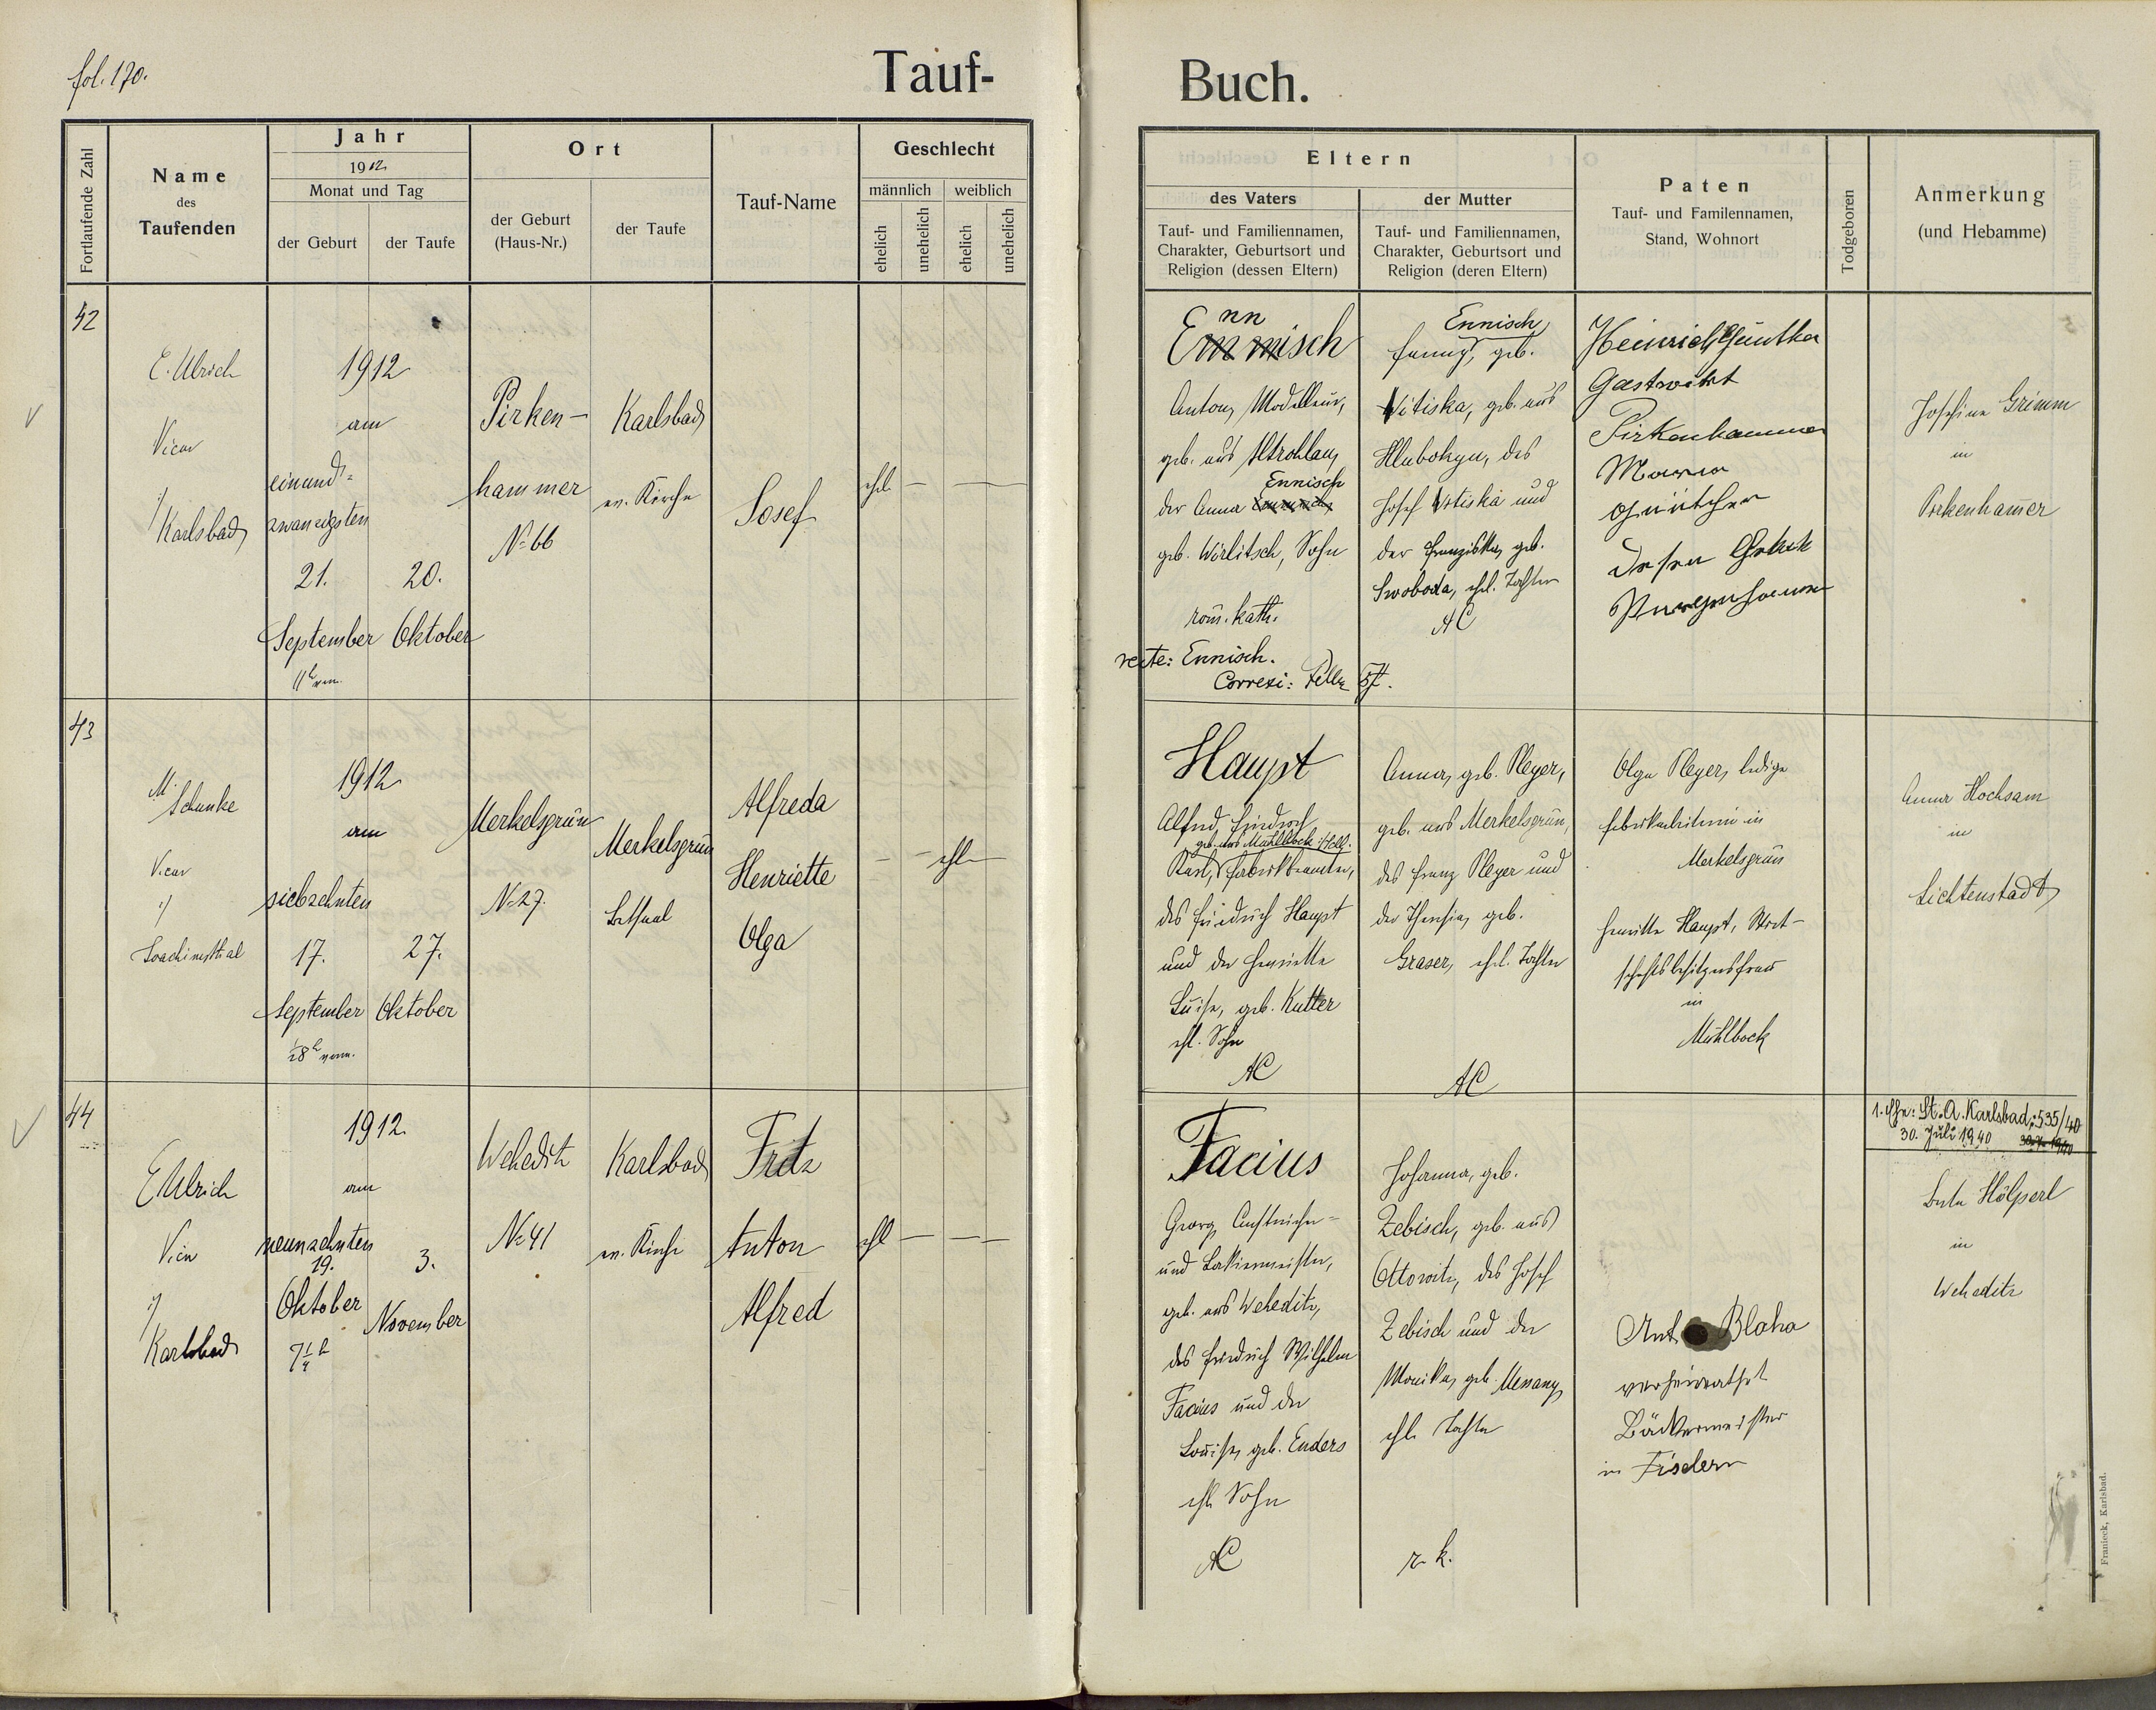 fol. 170.
Tauf-
Fortlaufende Zahl
Name
des
Taufenden
Jahr
1912
Monat und Tag
der Geburt
der Taufe
Ort
der Geburt
(Haus-Nr.)
der Taufe
Tauf-Name
Geschlecht
männlich
weiblich
ehelich
unehelich
ehelich
unehelich
42
E. Ulrich
Vicar
Karlsbad
1912
am
einund-
zwanzigsten
21.
September
11h vm.
20.
Oktober
Pirken-
hammer
No 66
Karlsbad
ev. Kirche
Josef
ehl.
43
M.
Schunke
Vicar
Joachimsthal
1912
am
siebzehnten
17.
September
½8h vorm.
27.
Oktober
Merkelsgrün
No 27.
Merkelsgrün
Betsaal
Alfreda
Henriette
Olga
ehl
44
E Ulrich
Vicar
Karlsbad
1912.
am
neunzehnten
19.
Oktober
7¼ h
3.
November
Weheditz
No 41
Karlsbad
ev. Kirche
Fritz
Anton
Alfred
ehl
Buch.
Eltern
des Vaters
Tauf- und Familiennamen,
Charakter, Geburtsort und
Religion (dessen Eltern)
der Mutter
Tauf- und Familiennamen,
Charakter, Geburtsort und
Religion (deren Eltern)
Paten
Tauf- und Familennamen,
Stand, Wohnort
Todgeboren
Anmerkung
(und Hebamme)
nn
Emmisch
Anton, Modelleur,
geb. aus Altrohlau,
Ennisch
der Anna
geb. Wirlitsch, Sohn
röm. kath.
recte: Ennisch.
Correxi:
Ennisch
Fanny, geb.
Vitiska, geb. aus
Hlubokyn, des
Josef Vitiska und
der Franziska, geb.
Swoboda, ehel. Tochter
AC
Heinrich Günther
Gastwirt
Pirkenhammer
Maria
Günther
dessen
Josefine Grimm
in
Pirkenham̄er
Haupt
Alfred Friedrich
geb. aus Mühlbock
Karl, Fabriksbeamter,
des Friedrich Haupt
und der Henriette
Luise, geb. Kutter
ehl. Sohn
AC
Anna, geb. Pleyer,
geb. aus Merkelsgrün,
des Franz Pleyer und
der Theresia, geb.
Graser, ehel. Tochter
AC
Olga Pleyer, ledige
Fabriksarbeiterin in
Merkelsgrün
Henriette Haupt, Wirt-
schaftsbesitzersfrau
in
Mühlbock
Anna Hochsam
in
Lichtenstadt
Facius
Georg, Anstreicher-
und Lakiermeister,
geb. aus Weheditz,
des Friedrich Wilhelm
Facius und der
Louise, geb. Enders
ehl. Sohn
AC
Johanna, geb.
Zebisch, geb. aus
Ottowitz, des Josef
Zebisch und der
Monika, geb. Messany,
ehl. Tochter
r. k.
Blaha
verheirathet
Bäckermeister
in Fischern
1. Ehe: St. A. Karlsbad: 535/40
30. Juli 1940
Hölperl
in
Weheditz
Franieck, Karlsbad.